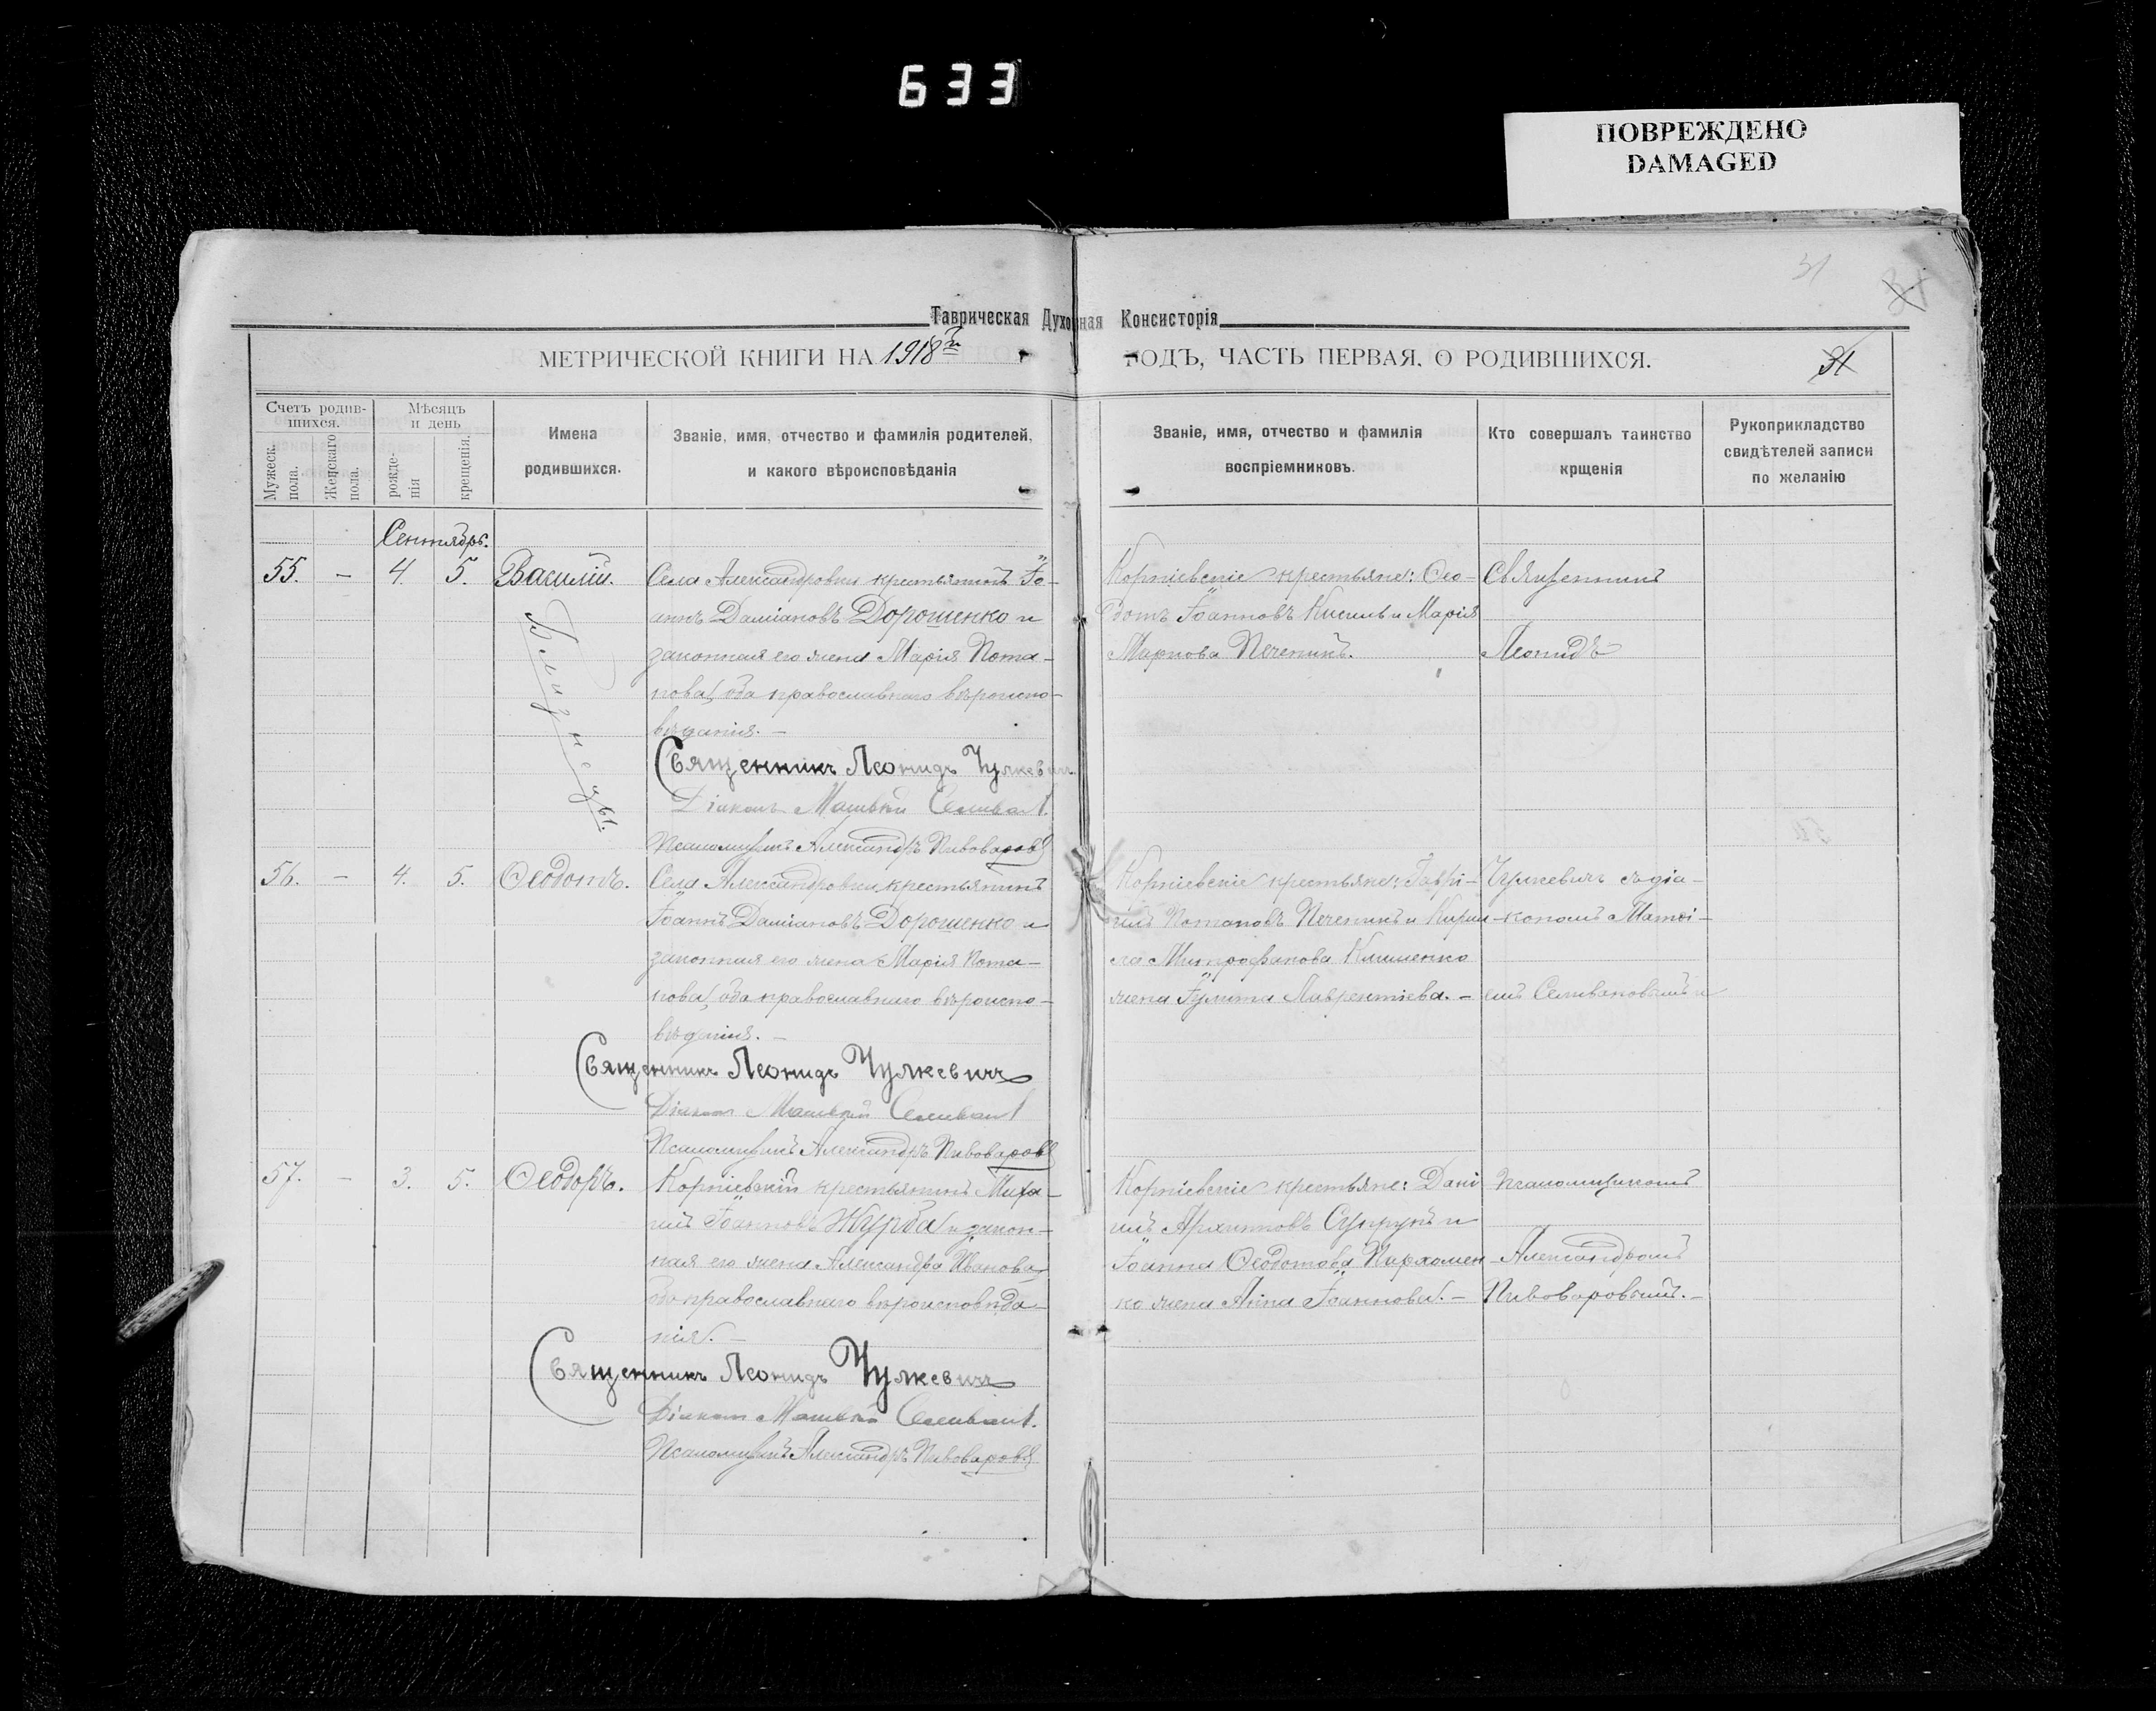 633
ПОВРЕЖДЕНО
DAMAGED
31
Таврическая Духовная Консисторія
МЕТРИЧЕСКОЙ КНИГИ НА 1918й ГОДЪ, ЧАСТЬ ПЕРВАЯ, О РОДИВШИХСЯ.
31
Счетъ родив-
шихся.
Мужеск. пола.
Женскаго пола.
Мѣсяцъ
и день
рожде-
нія
крещенія.
Имена
родившихся.
Званіе, имя, отчество и фамилія родителей,
и какого вѣроисповѣданія
Званіе, имя, отчество и фамилія
воспріемниковъ.
Кто совершалъ таинство
крщенія
Рукоприкладство
свидѣтелей записи
по желанію
Сентябрь.
55. – 4. 5. Василій.
Близнецы.
Села Александровки крестьянинъ Іо-
аннъ Даміановъ Дорошенко и
законная его жена Марія Пота-
пова, оба православнаго вѣроиспо-
вѣданія. –
Священникъ Леонидъ Чулкевичъ
Діаконъ Матвѣй Селиван
Псаломщикъ Александръ Пивоваровъ
Корніевскіе крестьяне: Ѳео-
дотъ Іоанновъ Кисиль и Марія
Маркова Печеникъ.
Священникъ
Леонидъ
56. – 4. 5. Ѳеодотъ.
Села Александровки крестьянинъ
Іоаннъ Даміановъ Дорошенко и
законная его жена Марія Пота-
пова, оба православнаго вѣроиспо-
вѣданія. –
Священникъ Леонидъ Чулкевичъ
Діаконъ Матвѣй Селиван
Псаломщикъ Александръ Пивоваровъ
Корніевскіе крестьяне: Гаврі-
илъ Потаповъ Печеникъ и Кирил-
ла Митрофанова Клименко
жена Іулита Лаврентіева. –
Чулкевичъ съ діа-
кономъ Матѳі-
емъ Селивановымъ и
57. – 3. 5. Ѳеодоръ.
Корніевскій крестьянинъ Миха-
илъ Іоанновъ Журба и закон-
ная его жена Александра Иванова,
оба православнаго вѣроисповѣда-
нія. –
Священникъ Леонидъ Чулкевичъ
Діаконъ Матвѣй Селиван
Псаломщикъ Александръ Пивоваровъ
Корніевскіе крестьяне: Дані
илъ Архиповъ Супрунъ и
Іоанна Ѳеодотова Пархомен-
ко жена Анна Іоаннова. –
псаломщикомъ
Александромъ
Пивоваровымъ. –